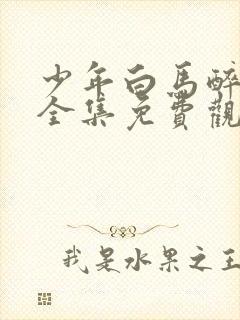 少年白馬醉
全集免費觀
我是水果之王